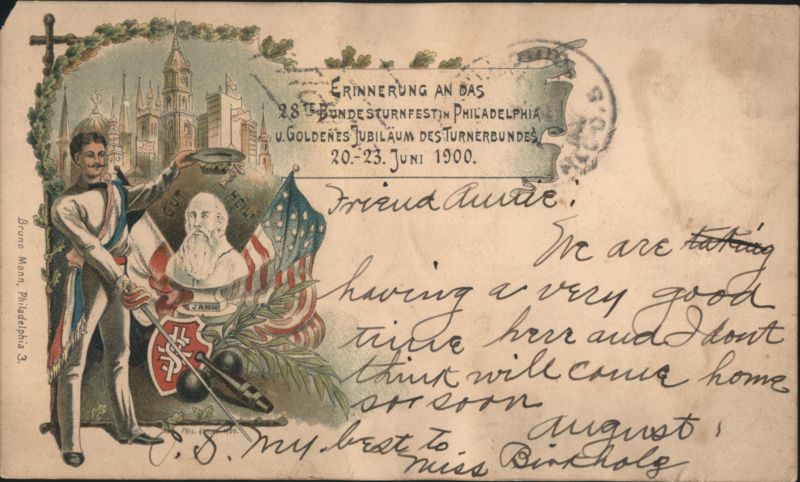 ERINNERUNG AN DAS
28TE BUNDESTURNFEST IN PHILADELPHIA
U. GOLDENES JUBILÄUM DES TURNERBUNDES
20.-23. JUNI 1900.
GUT HEIL!
JAHN
Bruno Mann, Philadelphia 3.
Friend Annie!
We are taking
having a very good
time here and I dont
think will come home
so soon
August.
P.S. My best to
Miss Birkholz